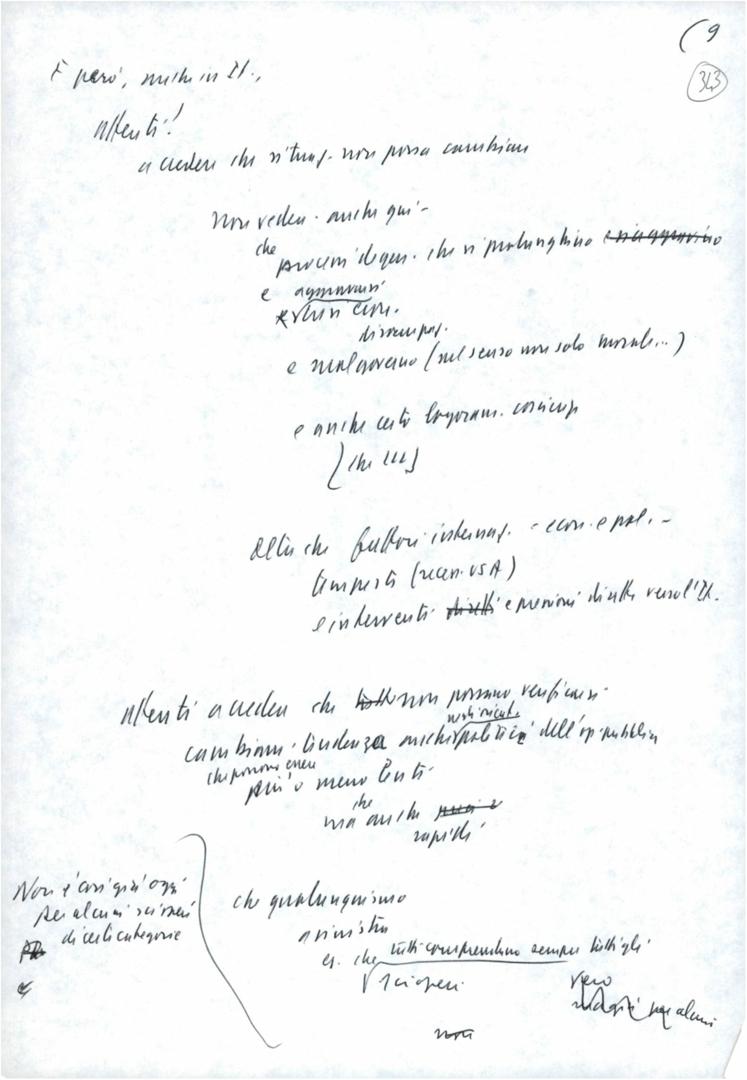 (9
343
E però, anche in It.,
attenti!
a credere che situaz. non possa cambiare
non vedere anche qui -
che
processi degen. che si prolunghino e si aggravino
e aggravarsi
crisi econ.
disoccupaz.
e malgoverno (nel senso non solo morale...)
e anche certo logoram. coscienze
[che
oltre che fattori internaz. - econ. e pol. -
tempesta (recess. USA)
e interventi diretti e pressioni dirette verso l'It.
attenti a credere che non possano verificarsi
cambiam. tendenza anche politica dell'op. pubblica
che possono essere
più o meno lenti
che
ma anche
rapidi
Non è così già oggi
per alcuni scioperi
di certe categorie
che qualunquismo
a sinistra
es. che tutti comprendano sempre tutti gli
scioperi
vero
per alcuni
non